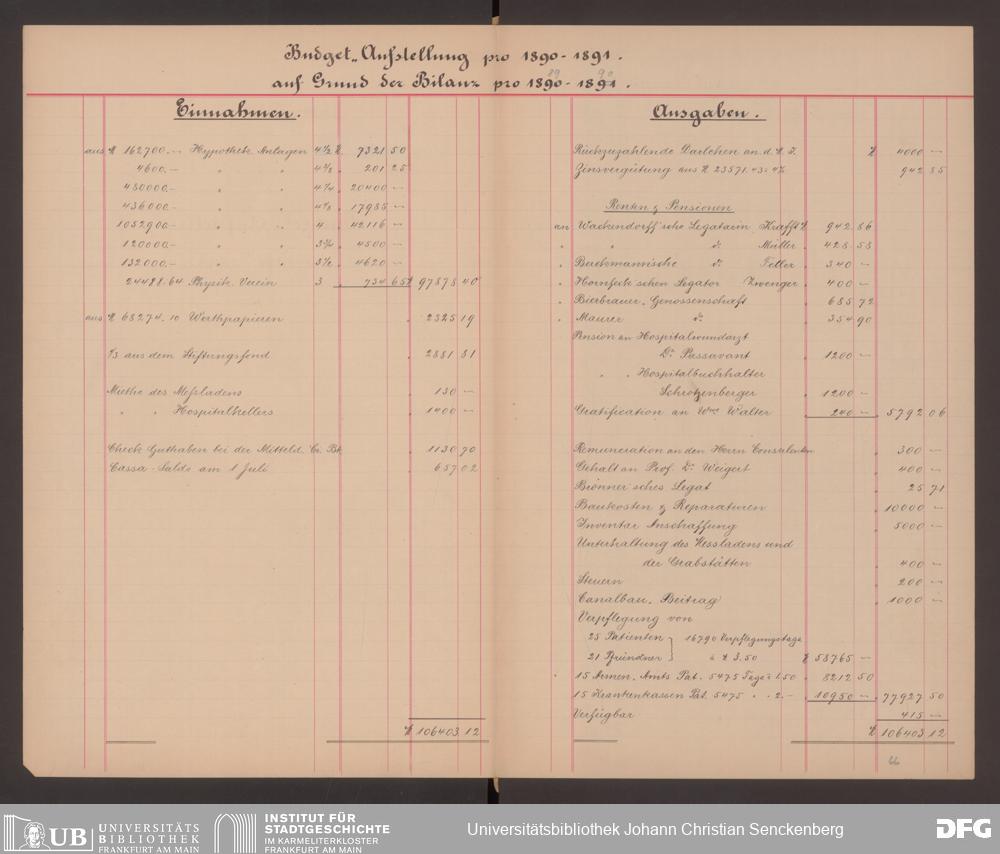 Budget-Aufstellung pro 1890-1891.
auf Grund der Bilanz pro 1890-1891.
89 90
Einnahmen.
aus ℳ 162700.— Hypothek. Anlagen 4½ ℳ 7321 50
4600.— " " 4⅜ " 201 25
480000.— " " 4¼ " 20400 —
436000.— " " 4⅛ " 17985 —
1052900.— " " 4 " 42116 —
120000.— " " 3¾ " 4500 —
132000.— " " 3½ " 4620 —
24488.64 Physik. Verein 3 " 734 65 ℳ 97878 40
aus ℳ 68274.10 Werthpapieren " 2325 19
⅓ aus dem Stiftungsfond " 2881 81
Miethe des Meßladens " 130 —
" " Hospitalkellers " 1400 —
Check Guthaben bei der Mitteld. Cr. Bk. " 1130 70
Cassa-Saldo am 1 Juli " 657 02
ℳ 106403 12
Ausgaben.
Rückzuzahlende Darlehen an. d. ℳ 4000 —
Zinsvergütung aus ℳ 23571.43 à 4% 942 85
Renten & Pensionen
an Wackendorff'sche Legatarin Krafft ℳ 942 86
" " do. Müller " 428 58
" do. Feller " 340 —
" schen Legator Zwenger " 400 —
" Bierbrauer-Genossenschaft " 685 72
" Maurer do. " 354 90
Pension an Hospitalwundarzt
Dr. Passavant " 1200 —
" " Hospitalbuchhalter
Schrotzenberger " 1200 —
Gratification an Wwe Walter " 240 — " 5792 06
Remuneration an den Herrn Consulenten " 300 —
Gehalt an Prof. Dr. Weigert " 400 —
Brönner'sches Legat " 25 71
Baukosten & Reparaturen " 10000 —
Inventar Anschaffung " 5000 —
Unterhaltung des Messladens und
der Grabstätten " 400 —
Steuern " 200 —
Canalbau-Beitrag " 1000 —
Verpflegung von
25 Patienten } 16790 Verpflegungstage
21 Pfründner } à ℳ 3.50 ℳ 58765 —
15 Armen-Amts Pat. 5475 Tage à 1.50 " 8212 50
15 Krankenkassen Pat. 5475 " " 2.— " 10950 — " 77927 50
Verfügbar 415 —
ℳ 106403 12
66
UB UNIVERSITÄTS
BIBLIOTHEK
FRANKFURT AM MAIN
INSTITUT FÜR
STADTGESCHICHTE
IM KARMELITERKLOSTER
FRANKFURT AM MAIN
Universitätsbibliothek Johann Christian Senckenberg
DFG